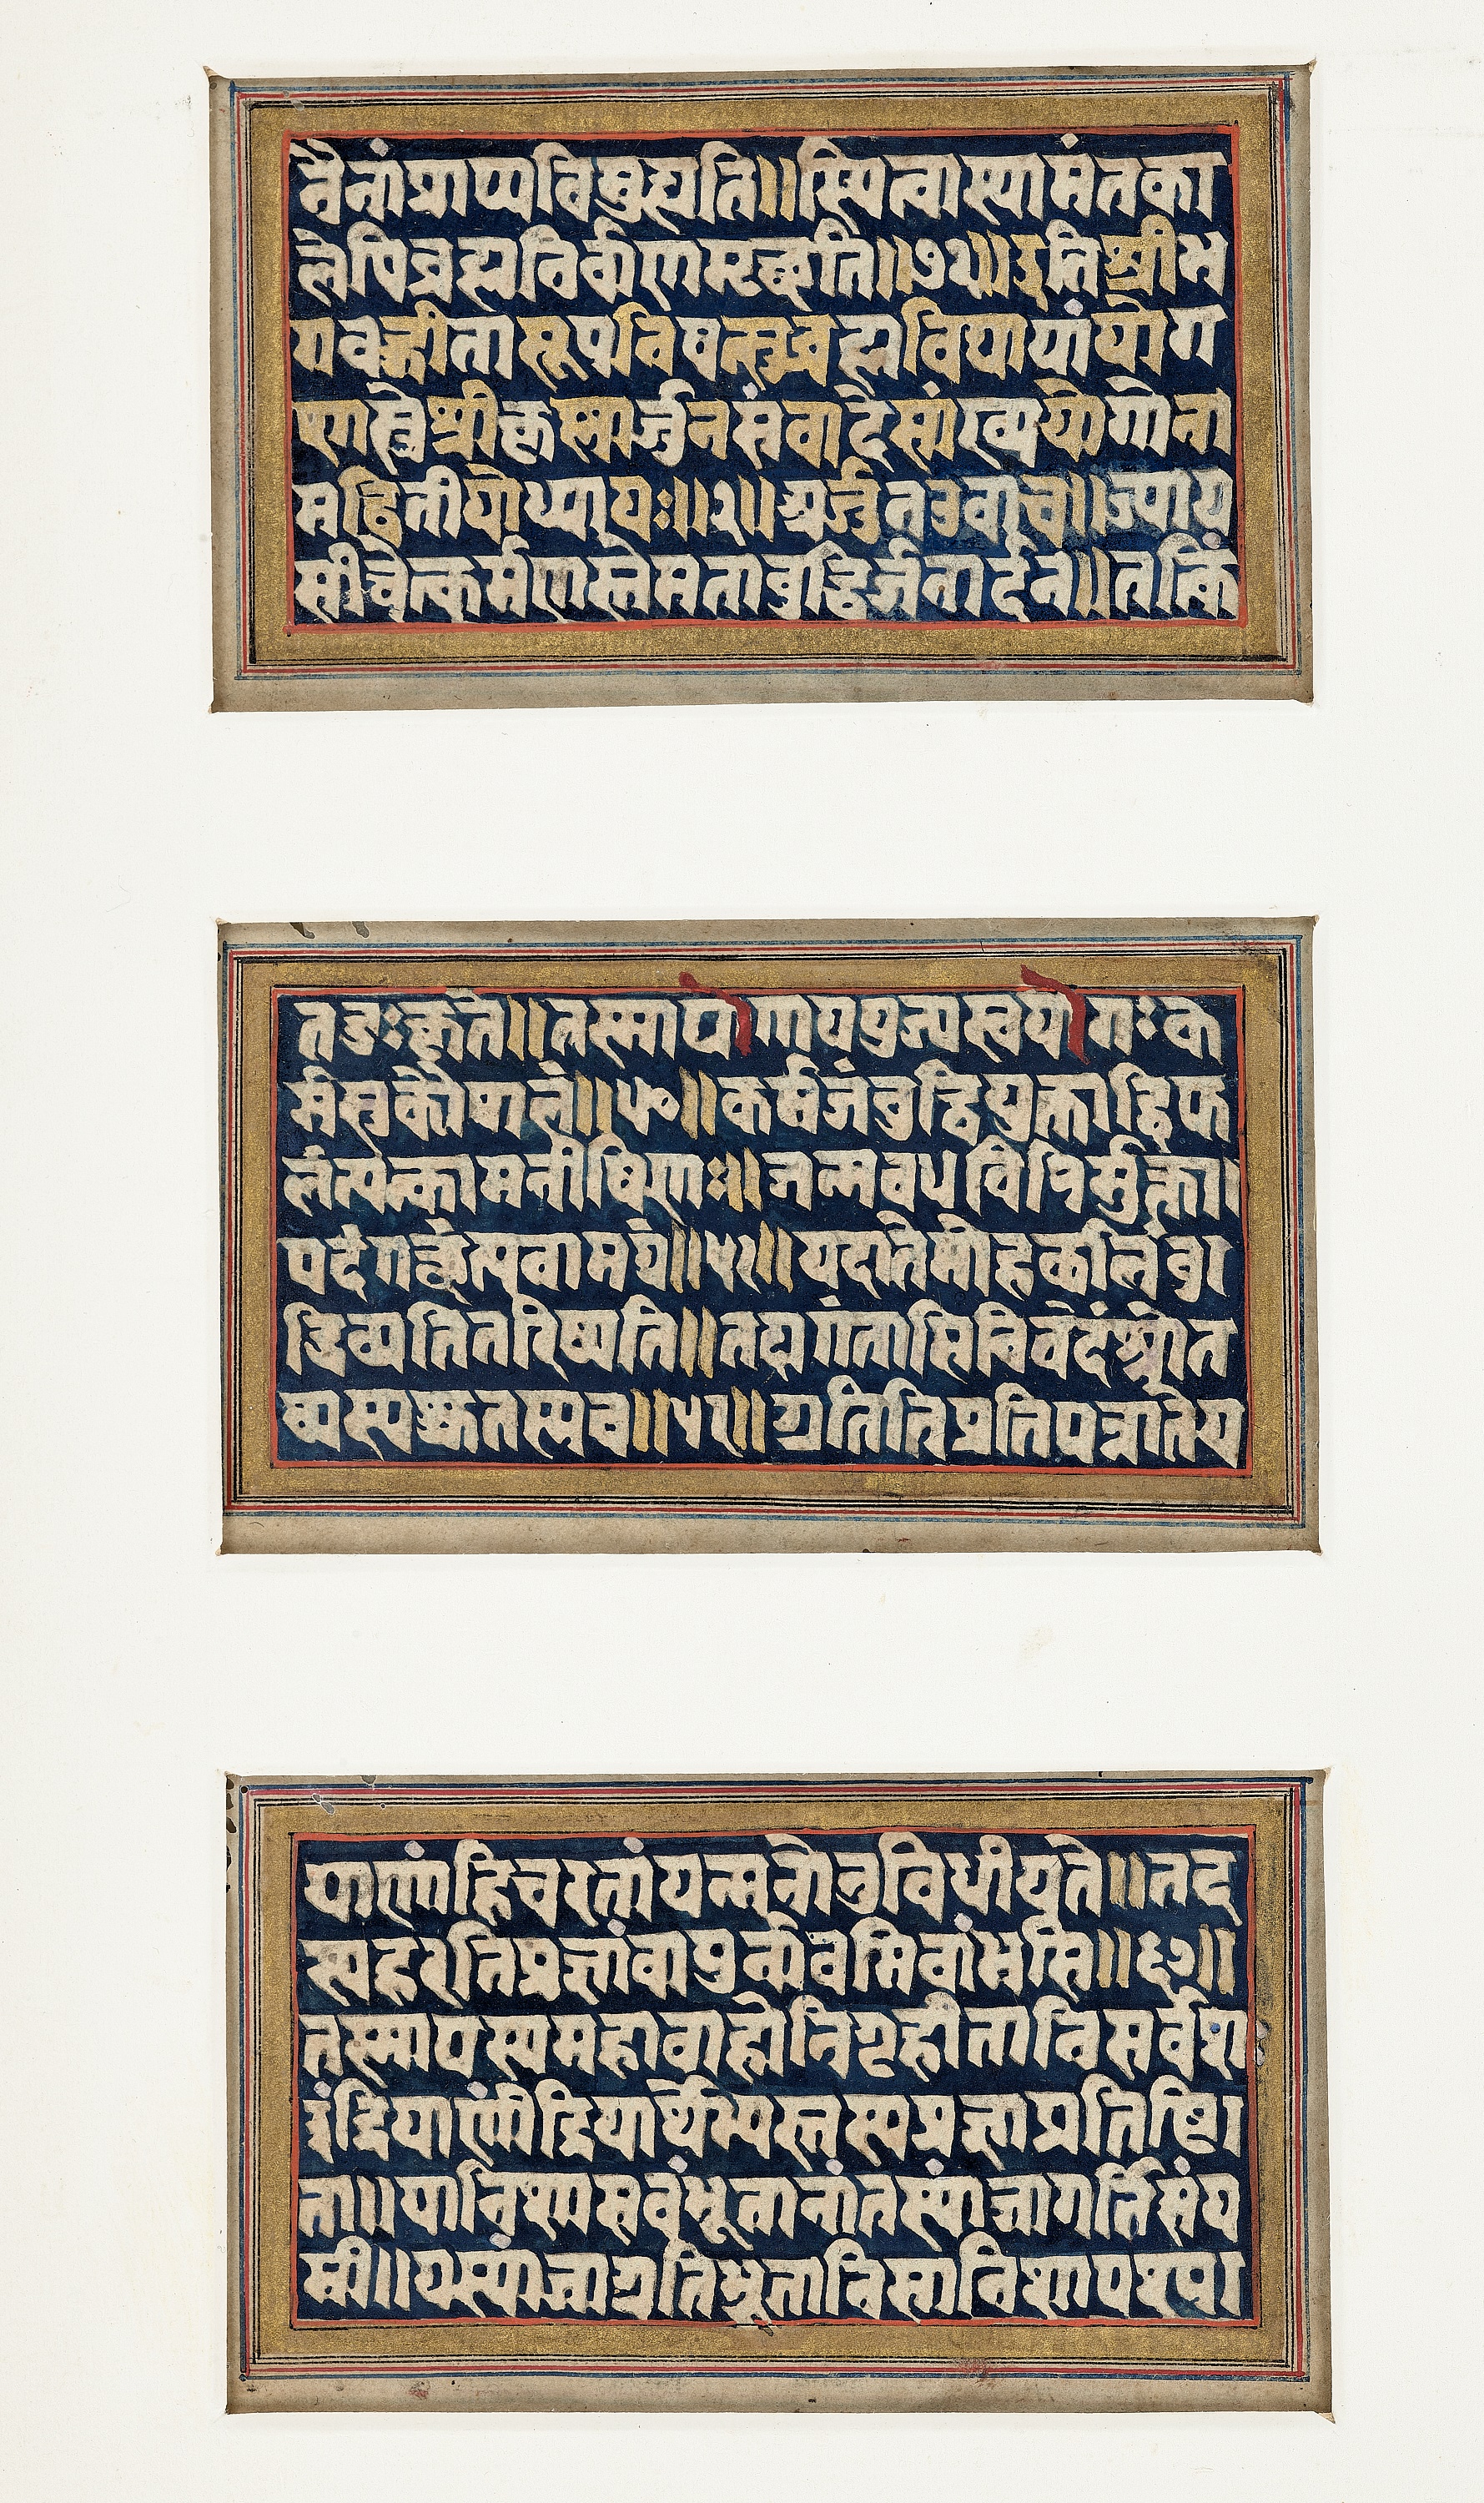 नैनांप्राप्यविमुह्यति॥स्थित्वास्यामंतका
लेपिब्रह्मनिर्वाणमृच्छति॥७२॥इतिश्रीभ
गवद्गीतासूपनिषत्सुब्रह्मविद्यायांयोग
शास्त्रेश्रीकृष्णार्जुनसंवादेसांख्ययोगोना
मद्वितीयोध्यायः॥२॥अर्जुनउवाच॥ज्याय
सीचेत्कर्मणस्तेमताबुद्धिर्जनार्दन॥तत्किं
तदुःकृते॥तस्माद्योगाययुज्यस्वयोगःक
र्मसुकौशलं॥५०॥कर्मजंबुद्धियुक्ताहिफ
लंत्यक्त्वामनीषिणः॥जन्मबंधविनिर्मुक्ताः
पदंगच्छंत्यनामयं॥५१॥यदातेमोहकलिलंबु
द्धिर्व्यतितरिष्यति॥तदागंतासिनिर्वेदंश्रोत
व्यस्यश्रुतस्यच॥५२॥श्रुतिविप्रतिपन्नातेय
याणांहिचरतांयन्मनोनुविधीयते॥तद
स्यहरतिप्रज्ञांवायुर्नावमिवांभसि॥६७॥
तस्माद्यस्यमहाबाहोनिगृहीतानिसर्वशः
इंद्रियाणींद्रियार्थेभ्यस्तस्यप्रज्ञाप्रतिष्ठि
ता॥यानिशासर्वभूतानांतस्यांजागर्तिसंय
मी॥यस्यांजाग्रतिभूतानिसानिशापश्य